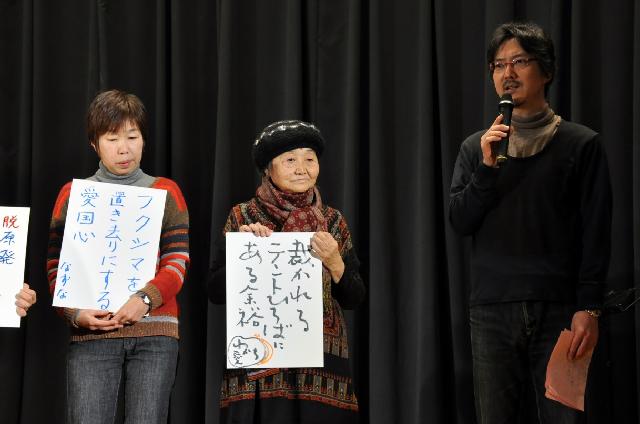 脱原発
フクシマを
置き去りにする
愛国心
なずな
裁かれる
テントひろばに
ある余裕